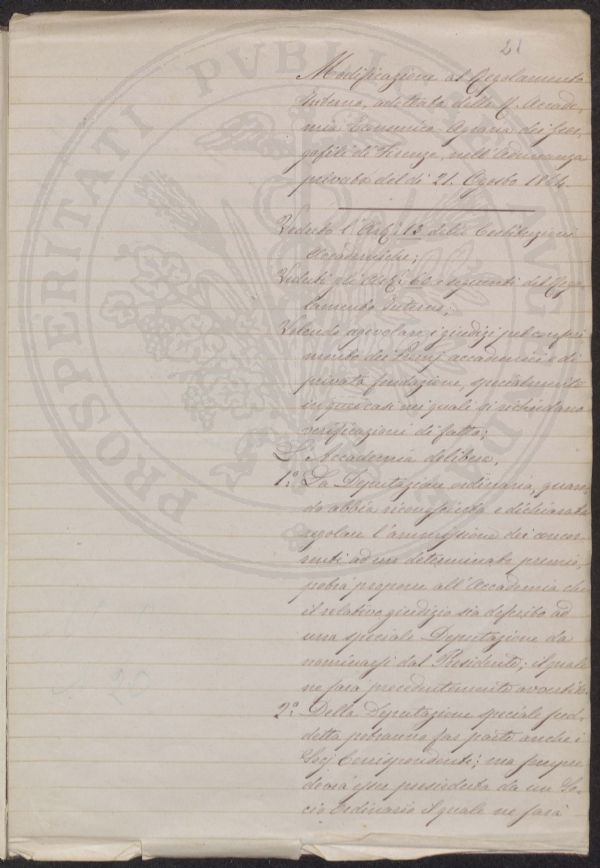 21
Modificazione al Regolamento
Interno, adottata dalla R. Accade
mia Economico Agraria dei Geor
gofili di Firenze, nell'Adunanza
privata del dì 21. Agosto 1864.
Veduto l'Art.i 13 delle Costituzioni
Accademiche;
Veduti gli Art.i 60 e seguenti del Rego
lamento Interno;
Volendo agevolare i giudizi pel conferi
mento dei Premj accademici e di
privata fondazione, specialmente
in quei casi nei quali si richiedano
verificazioni di fatto;
L'Accademia delibera,
1.o La Deputazione ordinaria, quan
do abbia riconosciuta e dichiarata
regolare l'ammissione dei concor
renti ad un determinato premio,
potrà proporre all'Accademia che
il relativo giudizio sia deferito ad
una speciale Deputazione da
nominarsi dal Presidente; il quale
ne farà precedentemente avvertito
2.o Della Deputazione speciale sud
detta potranno far parte anche i
Socj Corrispondenti; ma sempre
dovrà esser presieduta da un So
cio Ordinario il quale ne farà
20
PROSPERITATI PUBLICAE